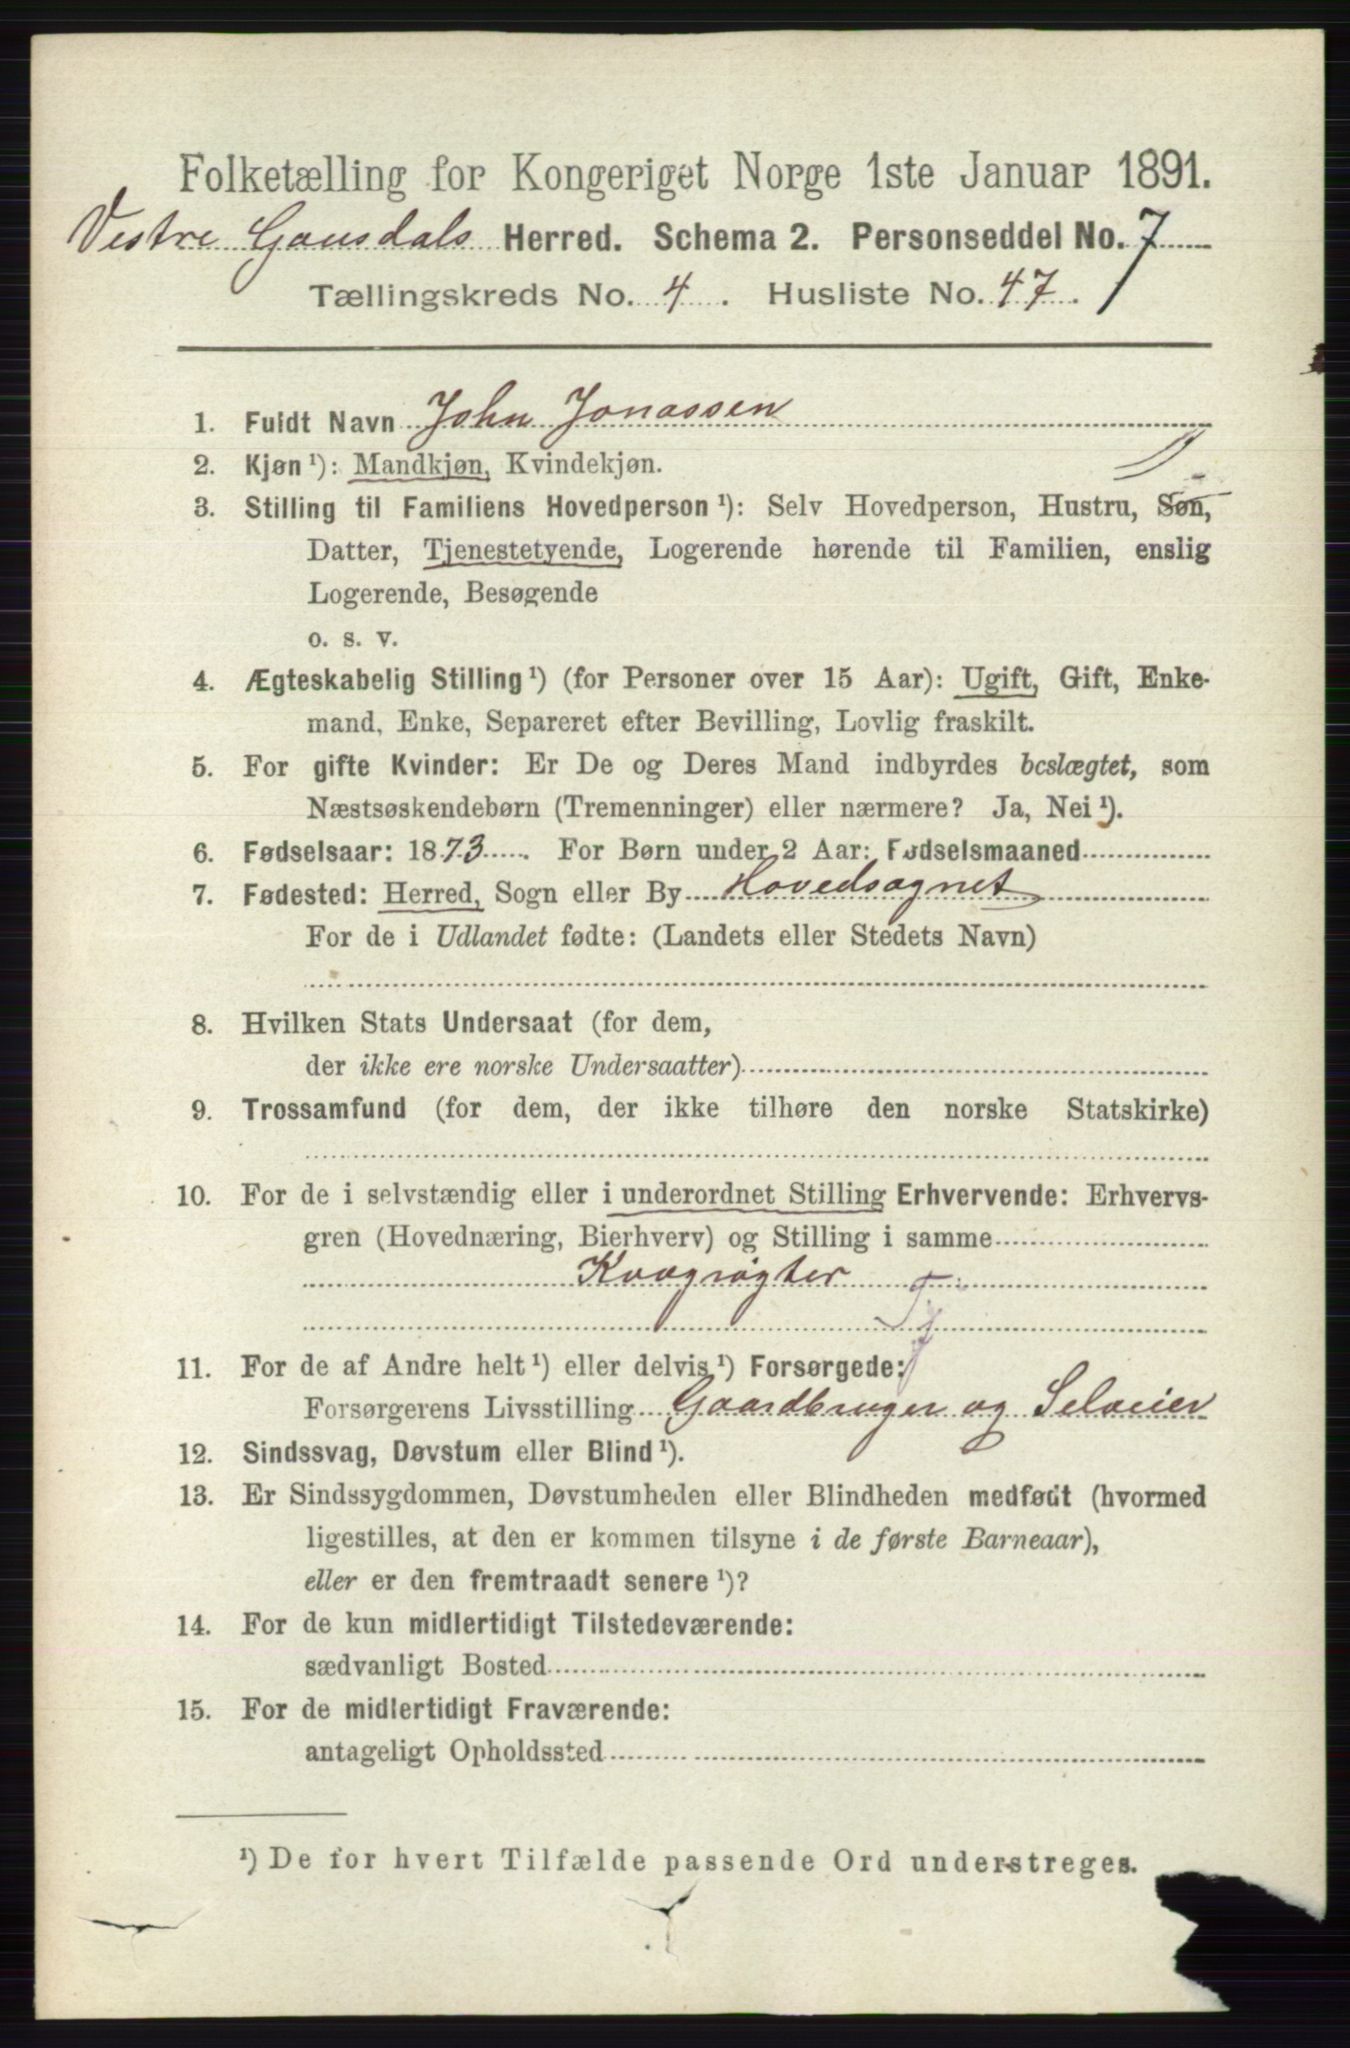 Folketælling for Kongeriget Norge 1ste Januar 1891.
Vestre Gausdals Herred. Schema 2. Personseddel No. 7
Tællingskreds No. 4. Husliste No. 47.
1. Fuldt Navn John Jonassen
2. Kjøn¹): Mandkjøn, Kvindekjøn.
3. Stilling til Familiens Hovedperson¹): Selv Hovedperson, Hustru, Søn,
Datter, Tjenestetyende, Logerende hørende til Familien, enslig
Logerende, Besøgende
o. s. v.
4. Ægteskabelig Stilling¹) (for Personer over 15 Aar): Ugift, Gift, Enke-
mand, Enke, Separeret efter Bevilling, Lovlig fraskilt.
5. For gifte Kvinder: Er De og Deres Mand indbyrdes beslægtet, som
Næstsøskendebørn (Tremenninger) eller nærmere? Ja, Nei¹).
6. Fødselsaar: 1873. For Børn under 2 Aar: Fødselsmaaned
7. Fødested: Herred, Sogn eller By Hovedsognet
For de i Udlandet fødte: (Landets eller Stedets Navn)
8. Hvilken Stats Undersaat (for dem,
der ikke ere norske Undersaatter)
9. Trossamfund (for dem, der ikke tilhøre den norske Statskirke)
10. For de i selvstændig eller i underordnet Stilling Erhvervende: Erhvervs-
gren (Hovednæring, Bierhverv) og Stilling i samme
Kvægrøgter
Tj
11. For de af Andre helt¹) eller delvis¹) Forsørgede:
Forsørgerens Livsstilling Gaardbruger og Selveier
12. Sindssvag, Døvstum eller Blind¹).
13. Er Sindssygdommen, Døvstumheden eller Blindheden medfødt (hvormed
ligestilles, at den er kommen tilsyne i de første Barneaar),
eller er den fremtraadt senere¹)?
14. For de kun midlertidigt Tilstedeværende:
sædvanligt Bosted
15. For de midlertidigt Fraværende:
antageligt Opholdssted
¹) De for hvert Tilfælde passende Ord understreges.